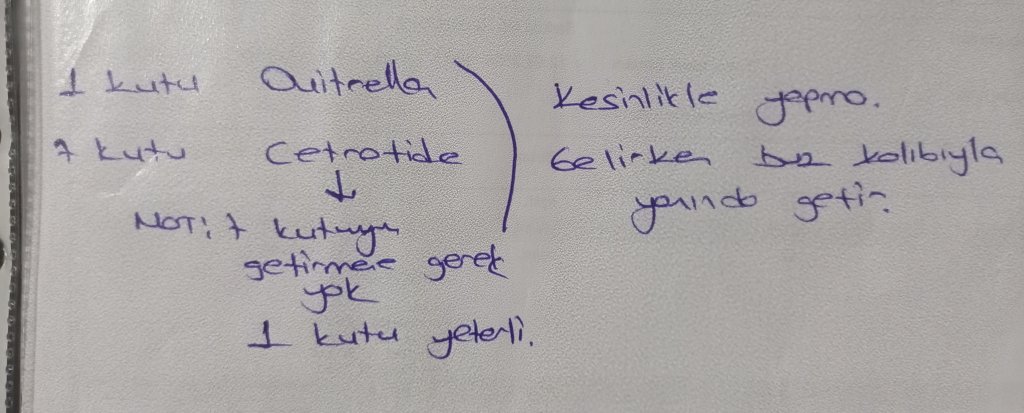 1 kutu Ovitrella
7 kutu Cetrotide
↓
NOT: 7 kutuyu
getirmene gerek
yok
1 kutu yeterli.
Kesinlikle yapma.
Gelirken buz kalıbıyla
yanında getir.